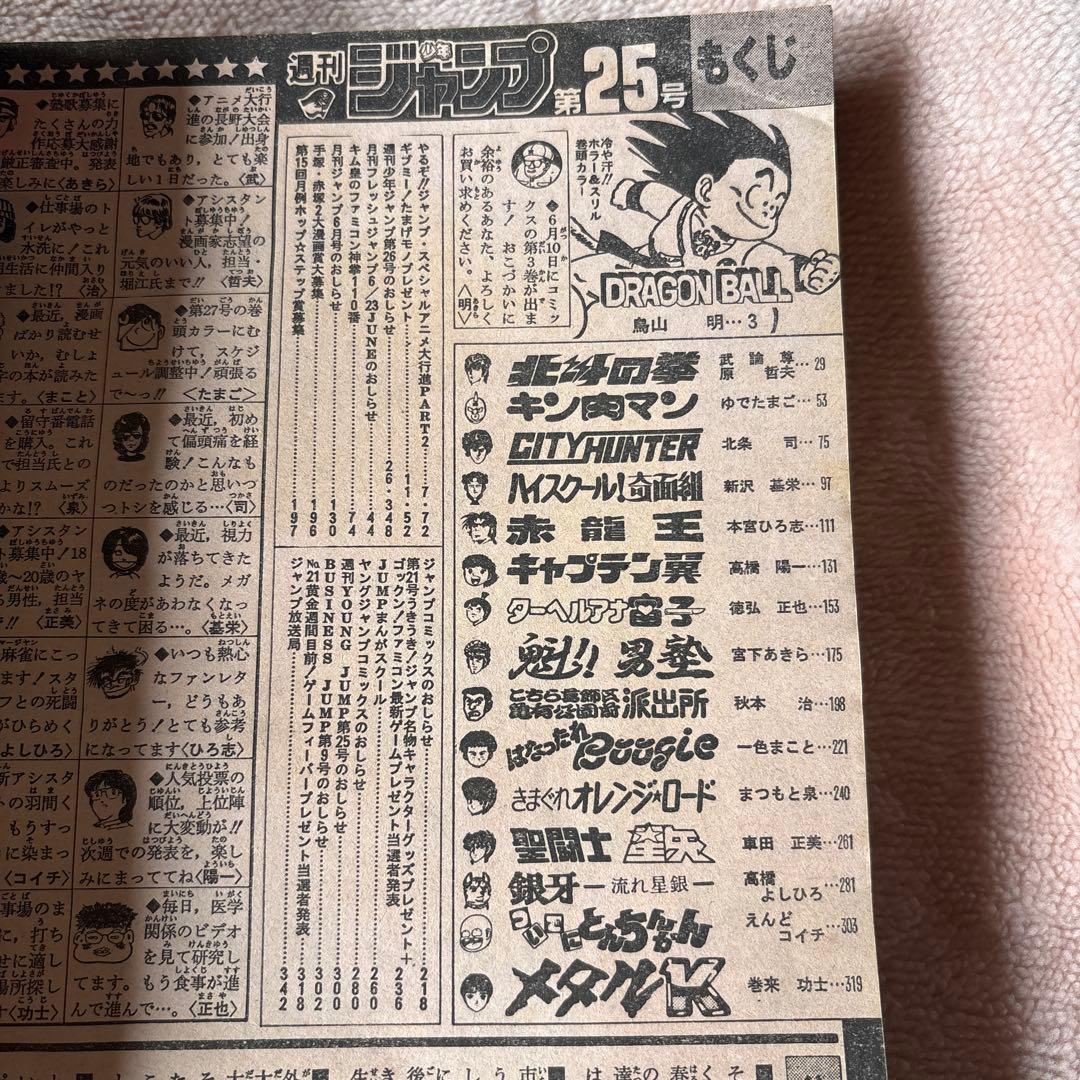 週刊少年ジャンプ 第25号 もくじ
冷や汗!!
ホラー&スリル
巻頭カラー
◆6月10日にコミッ
クスの第3巻が出ま
す! おこづかいに
余裕のあるあなた、よろしく
お買い求めください。〈明〉
DRAGON BALL
鳥山 明…3
北斗の拳 武論尊 原哲夫…29
キン肉マン ゆでたまご…53
CITY HUNTER 北条 司…75
ハイスクール!奇面組 新沢 基栄…97
赤龍王 本宮ひろ志…111
キャプテン翼 高橋 陽一…131
ターヘルアナ富子 徳弘 正也…153
魁!!男塾 宮下あきら…175
こちら葛飾区亀有公園前派出所 秋本 治…198
はなったれBoogie 一色まこと…221
きまぐれオレンジ★ロード まつもと泉…240
聖闘士星矢 車田 正美…261
銀牙—流れ星銀— 高橋よしひろ…281
ついでにとんちんかん えんどコイチ…303
メタルK 巻来 功士…319
やるぞ!!ジャンプ・スペシャルアニメ大行進PART2…7・72
ギブミー!たまげモノプレゼント…11・52
週刊少年ジャンプ第26号のおしらせ…26・348
月刊フレッシュジャンプ6/23JUNEのおしらせ…44
キム皇のファミコン神拳110番…74
月刊ジャンプ6月号のおしらせ…130
手塚・赤塚2大漫画賞大募集…196
第15回月例ホップ☆ステップ賞募集…197
ジャンプコミックスのおしらせ…218
第21号うきうき!ジャンプ名物キャラクターグッズプレゼント+
ゴックン!ファミコン最新ゲームプレゼント当選者発表…236
JUMPまんがスクール…260
ヤングジャンプコミックスのおしらせ…280
週刊YOUNG JUMP第25号のおしらせ…300
BUSINESS JUMP第9号のおしらせ…302
No.21黄金週間目前!ゲームフィーバープレゼント当選者発表…318
ジャンプ放送局…342
◆アニメ大行
進の長野大会
に参加!出身
地でもあり,とても楽
しい1日だった。〈武〉
◆アシスタン
ト募集中!
漫画家志望の
元気のいい人,担当・
堀江氏まで!!〈哲夫〉
◆第27号の巻
頭カラーにむ
けて,スケジ
ュール調整中!頑張る
で〜っ!!〈たまご〉
◆最近,初め
て偏頭痛を経
験!こんなも
のだったのかと思いつ
つトシを感じる…〈司〉
◆最近,視力
が落ちてきた
ようだ。メガ
ネの度があわなくなっ
てきて困る…。〈基栄〉
◆いつも熱心
なファンレタ
ー,どうもあ
りがとう!とても参考
になってます〈ひろ志〉
◆人気投票の
順位,上位陣
に大変動が!!
次週での発表を,楽し
みにまっててね〈陽一〉
◆毎日,医学
関係のビデオ
を見て研究し
てます。もう食事が進
んで進んで…。〈正也〉
◆塾歌募集に
たくさんの力
作応募大感謝
厳正審査中。発表
楽しみに〈あきら〉
◆仕事場のト
イレがやっと
水洗に!これ
生活に仲間入り
ました!?〈治〉
◆最近,漫画
ばかり読むせ
いか,むしょ
字の本が読みた
ます。〈まこと〉
◆留守番電話
を購入。これ
で担当氏との
よりスムーズ
かな!?〈泉〉
◆アシスタン
ト募集中!18
歳〜20歳のヤ
る男性,担当
!!〈正美〉
麻雀にこっ
ます!スタ
フとの死闘
がひらめく
よしひろ〉
新アシスタ
トの羽間く
もうすっ
に染まっ
〈コイチ〉
事場のま
に,打ち
せに適し
場所探し
す〈功士〉